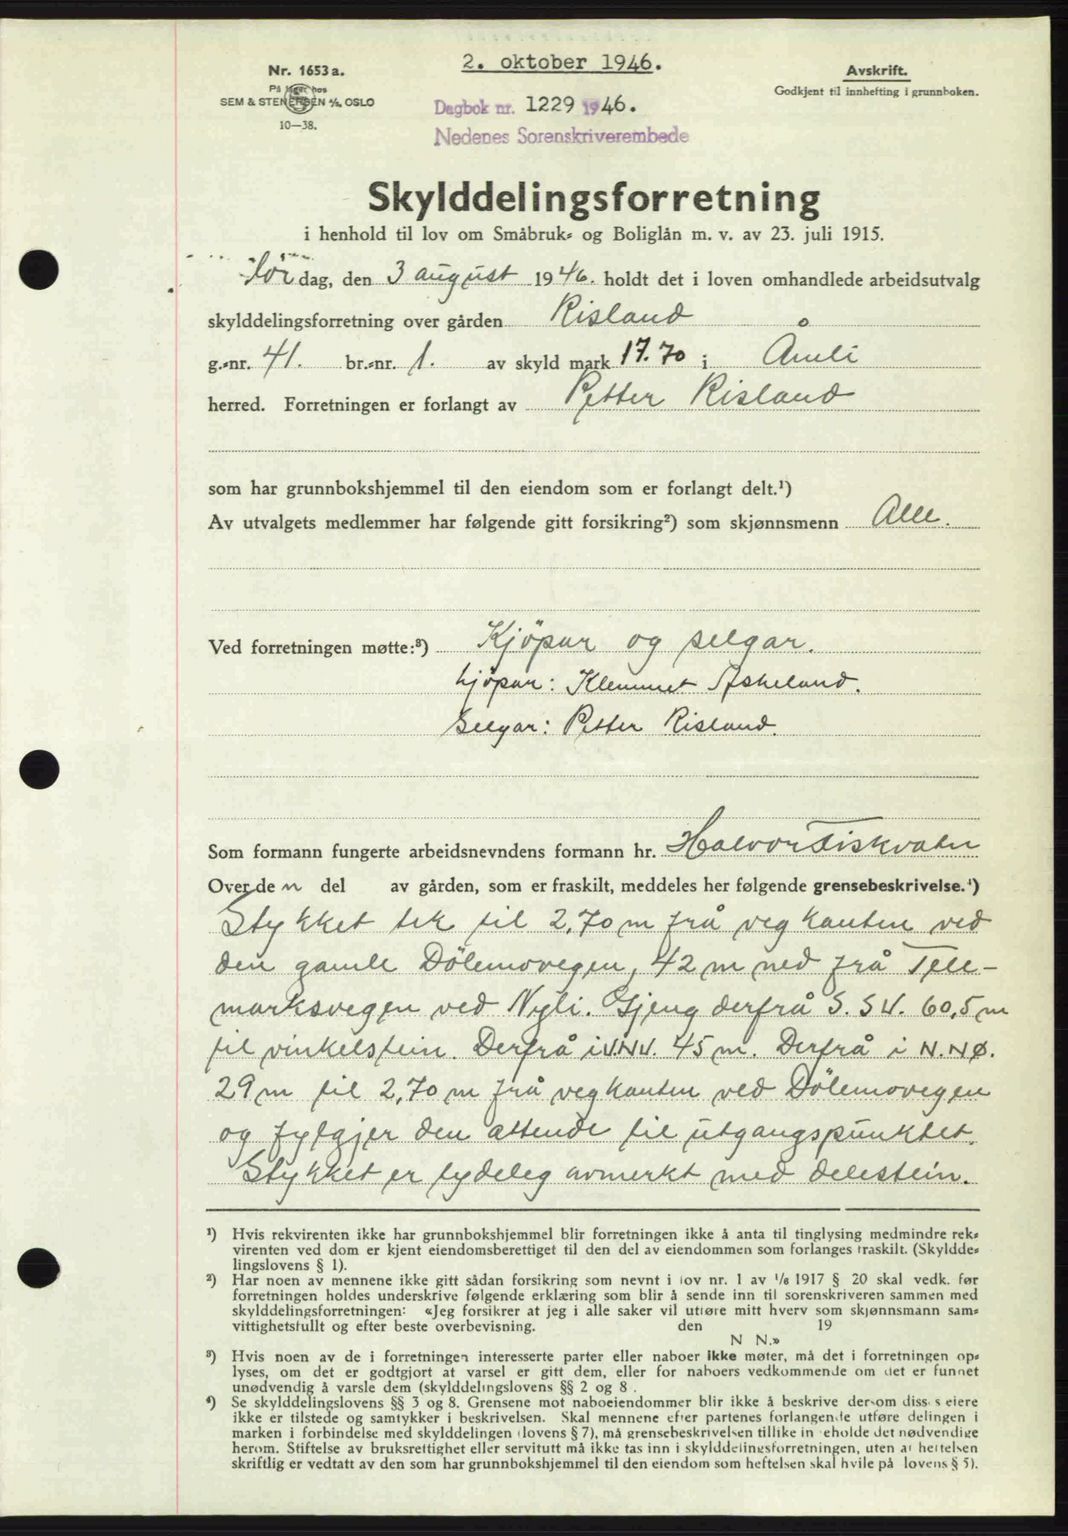 2. oktober 1946.
Nr. 1653a.
På lager hos
SEM & STENERSEN A/S, OSLO
10—38.
Avskrift.
Godkjent til innhefting i grunnboken.
Dagbok nr. 1229 1946.
Nedenes Sorenskriverembede
Skylddelingsforretning
i henhold til lov om Småbruk- og Boliglån m. v. av 23. juli 1915.
Lördag, den 3 august 1946. holdt det i loven omhandlede arbeidsutvalg
skylddelingsforretning over gården Risland
g.-nr. 41. br.-nr. 1. av skyld mark 17.70 i Åmli
herred. Forretningen er forlangt av Petter Risland
som har grunnbokshjemmel til den eiendom som er forlangt delt.¹)
Av utvalgets medlemmer har følgende gitt forsikring²) som skjønnsmenn Alle.
Ved forretningen møtte:³) Kjöpar og seljar.
kjöpar: Klemmet Askeland.
Selgar: Petter Risland.
Som formann fungerte arbeidsnevndens formann hr. Halvor Fiskvatn
Over den del av gården, som er fraskilt, meddeles her følgende grensebeskrivelse.⁴)
Stykket tek til 2,70 m frå vegkanten ved
den gamle Dölemovegen, 42 m ned frå Tele-
marksvegen ved Nyli. Gjeng derfrå S. SV. 60,5 m
til vinkelstein. Derfrå i V.NV. 45 m. Derfrå i N.NØ.
29 m til 2,70 m frå vegkanten ved Dölemovegen
og fylgjer den attende til utgangspunktet.
Stykket er tydeleg avmerkt med delestein.
¹) Hvis rekvirenten ikke har grunnbokshjemmel blir forretningen ikke å anta til tinglysing medmindre rek-
virenten ved dom er kjent eiendomsberettiget til den del av eiendommen som forlanges fraskilt. (Skyldde-
lingslovens § 1).
²) Har noen av mennene ikke gitt sådan forsikring som nevnt i lov nr. 1 av 1/6 1917 § 20 skal vedk. før
forretningen holdes underskrive følgende erklæring som blir å sende inn til sorenskriveren sammen med
skylddelingsforretningen: «Jeg forsikrer at jeg i alle saker vil utføre mitt hverv som skjønnsmann sam-
vittighetsfullt og efter beste overbevisning. den 19
N N.»
³) Hvis noen av de i forretningen interesserte parter eller naboer ikke møter, må det i forretningen op-
lyses, om det er godtgjort at varsel er gitt dem, eller for naboers vedkommende om det er funnet
unødvendig å varsle dem (skylddelingslovens §§ 2 og 8 .
⁴) Se skylddelingslovens §§ 3 og 8. Grensene mot naboeiendommer blir ikke å beskrive dersom disses eiere
ikke er tilstede og samtykker i beskrivelsen. Skal mennene efter partenes forlangende utføre delingen i
marken i forbindelse med skylddelingen (lovens § 7), må grensebeskrivelsen tillike inneholde det nødvendige
herom. Stiftelse av bruksrettighet eller servitutt må ikke tas inn i skylddelingsforretningen, uten at heftelsen
skriftlig er vedtatt av den som har grunnbokshjemmel til den eiendom som heftelsen skal hvile på lovens § 5).